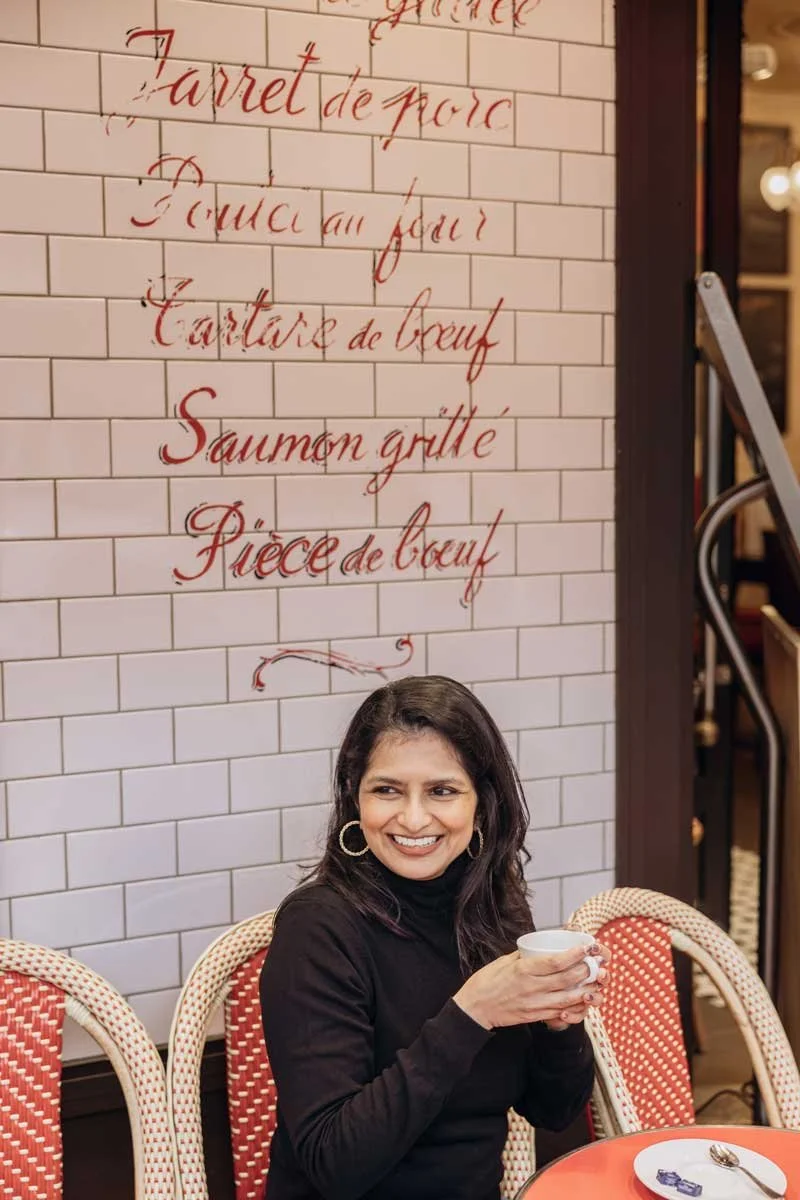 Jarret de porc
au jour
Tartare de bœuf
Saumon grillé
Pièce de bœuf